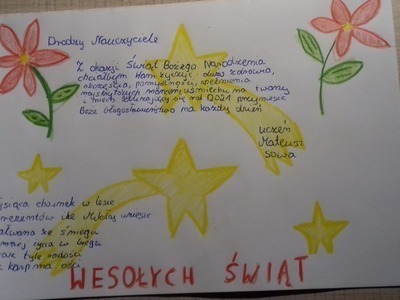 Drodzy Nauczyciele
Z okazji Świąt Bożego Narodzenia
chciałbym Wam życzyć: dużo zdrowia,
szczęścia, pomyślności, spełnienia
najskrytszych marzeń, uśmiechu na twarzy
i niech zbliżający się rok 2021 przyniesie
Boże błogosławieństwo na każdy dzień
uczeń
Mateusz
Sowa
choinek w lesie
prezentów ile Mikołaj uniesie
bałwana ze śniegu
życia w biegu
tyle radości
karp ma ości
WESOŁYCH ŚWIĄT